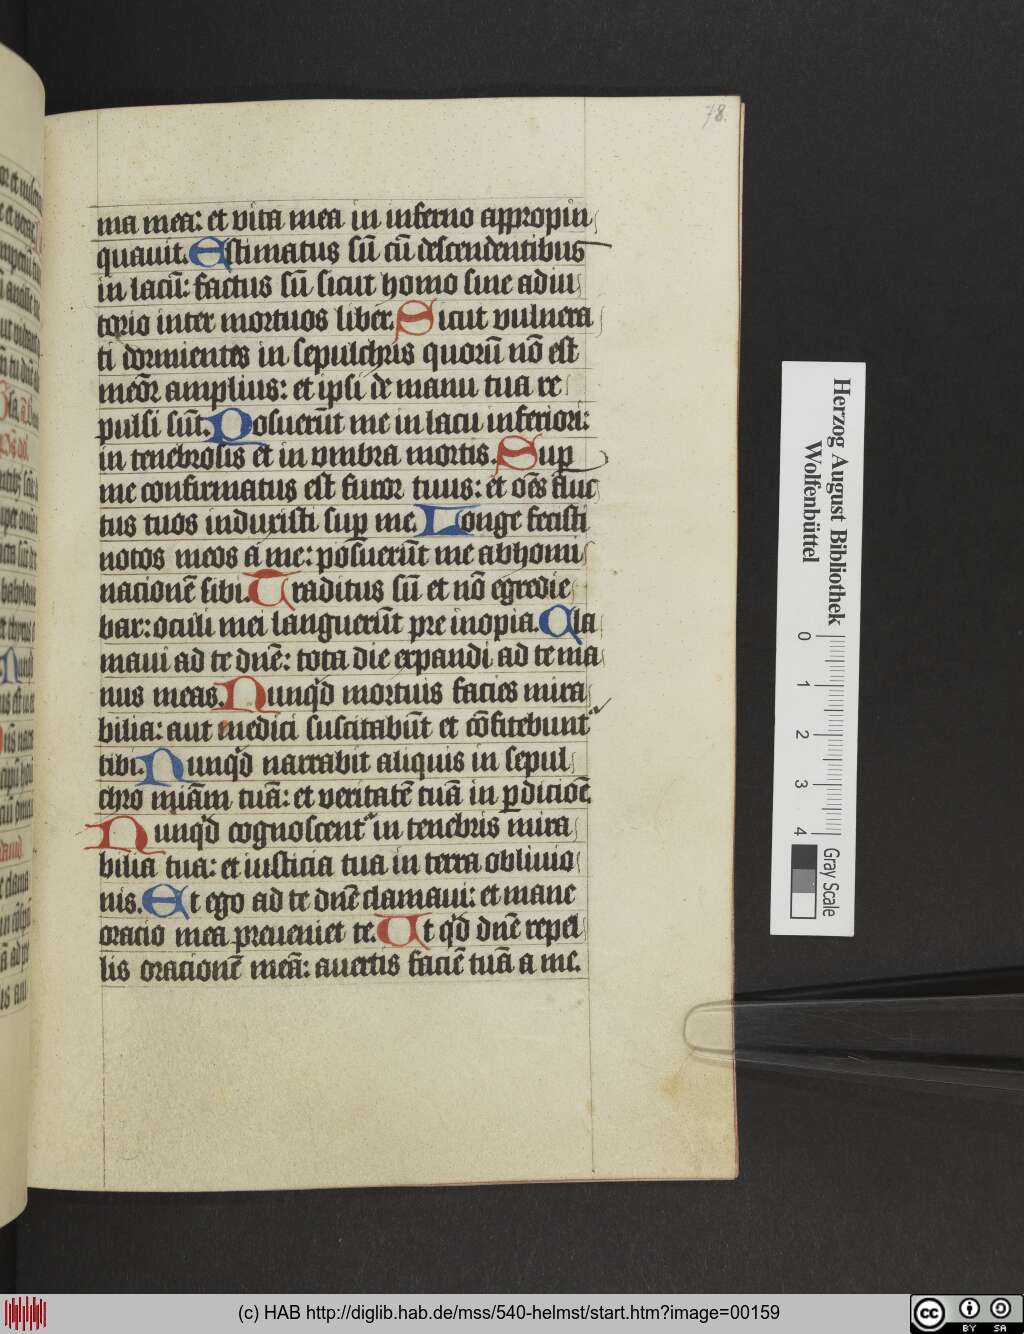 78.
ma mea: et vita mea in inferno appropin
quauit. Estimatus sū cū descendentibus
in lacū: factus sū sicut homo sine adiu
torio inter mortuos liber. Sicut vulnera
ti dormientes in sepulchris quorū nō est
meōr amplius: et ipsi de manu tua re
pulsi sūt. Posuerūt me in lacu inferiori:
in tenebrosis et in vmbra mortis. Sup
me confirmatus est furor tuus: et oēs fluc
tus tuos induxisti sup me. Longe fecisti
notos meos a me: posuerūt me abhomi
nacionē sibi. Traditus sū et nō egredie
bar: oculi mei languerūt pre inopia. Cla
maui ad te dn̄e: tota die expandi ad te ma
nus meas. Nunq̇d mortuis facies mira
bilia: aut medici suscitabūt et cōfitebunt
tibi. Nunq̇d narrabit aliquis in sepul
chro miām tuā: et veritatē tuā in ꝑdicioē
Nunq̇d cognoscent in tenebris mira
bilia tua: et iusticia tua in terra obliuio
nis. Et ego ad te dn̄e clamaui: et mane
oracio mea preueniet te. Ut q̇d dn̄e repel
lis oracionē meā: auertis faciē tuā a me.
Herzog August Bibliothek
Wolfenbüttel
0 1 2 3 4
Gray Scale
(c) HAB http://diglib.hab.de/mss/540-helmst/start.htm?image=00159
cc BY SA